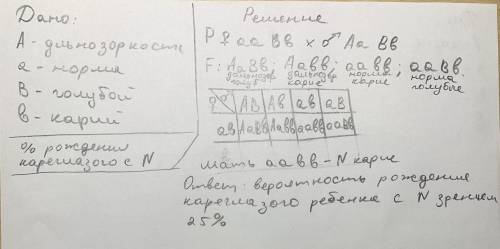 Дано:
А - дльнозоркость
а - норма
В - голубой
в - карий
% рождения
кареглазого с N
Решение
P ♀ aa Вв × ♂ Аа Вв
F: АаВв; Аавв; аавв; ааВв
дальнозор голуб дальнозор карие норма карие норма голубые
♀ ♂ АВ Ав ав аВ
ав АаВв Аавв аавв ааВв
мать аавв - N карие
Ответ: вероятность рождение
кареглазого ребенка с N зрением
25%